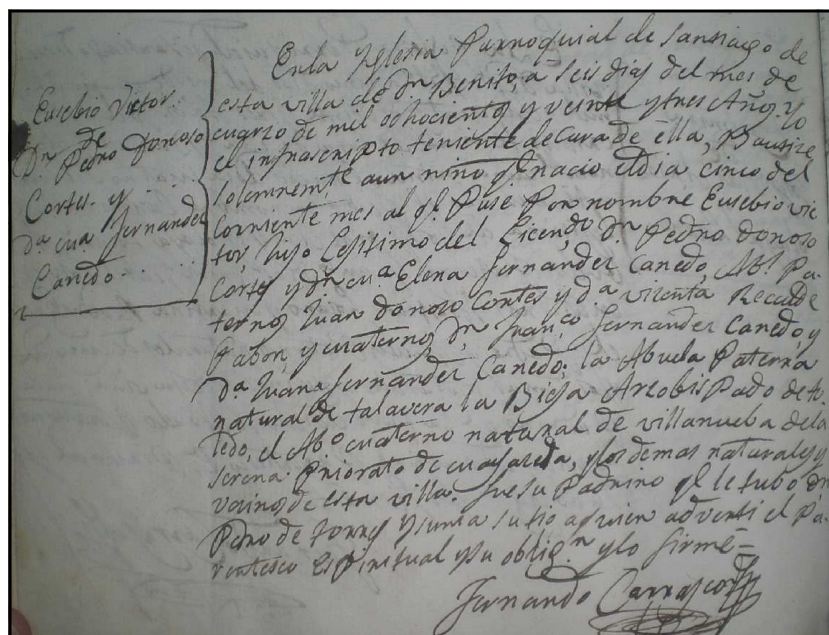 Eusebio Victor
de
Dn Pedro Donoso
Cortes. y
Da Ma Fernandez
Canedo.
En la Yglesia Parroquial de Santiago de
esta villa de Dn Benito, a seis dias del mes de
Marzo de mil ochocientos y veinte y tres Años. Yo
el infrascripto teniente de Cura de ella, Bautize
solemnemte a un niño qe nacio el dia cinco del
corriente mes al ql. Puse Por nombre Eusebio Vic
tor, hijo Lejitimo del Licendo Dn Pedro Donoso
Cortes y Da Ma Elena Fernandez Canedo, Abs. Pa-
ternos Juan Donoso Cortes y Da Vizenta Recalde
Pabon, y Maternos Dn Franco Fernandez Canedo, y
Da Juana Fernandez Canedo: la Abuela Paterna
natural de talavera la Bieja Arzobispado de to
ledo, el Abo Materno natural de villanueba de la
serena Priorato de Magazela, y los demas naturales y
vecinos de esta villa. fue su Padrino qe le tubo Dn
Pedro de torres y sunta su tio a quien adverti el Pa-
rentesco Espiritual y su obligon y lo firme=
Fernando Carrasco